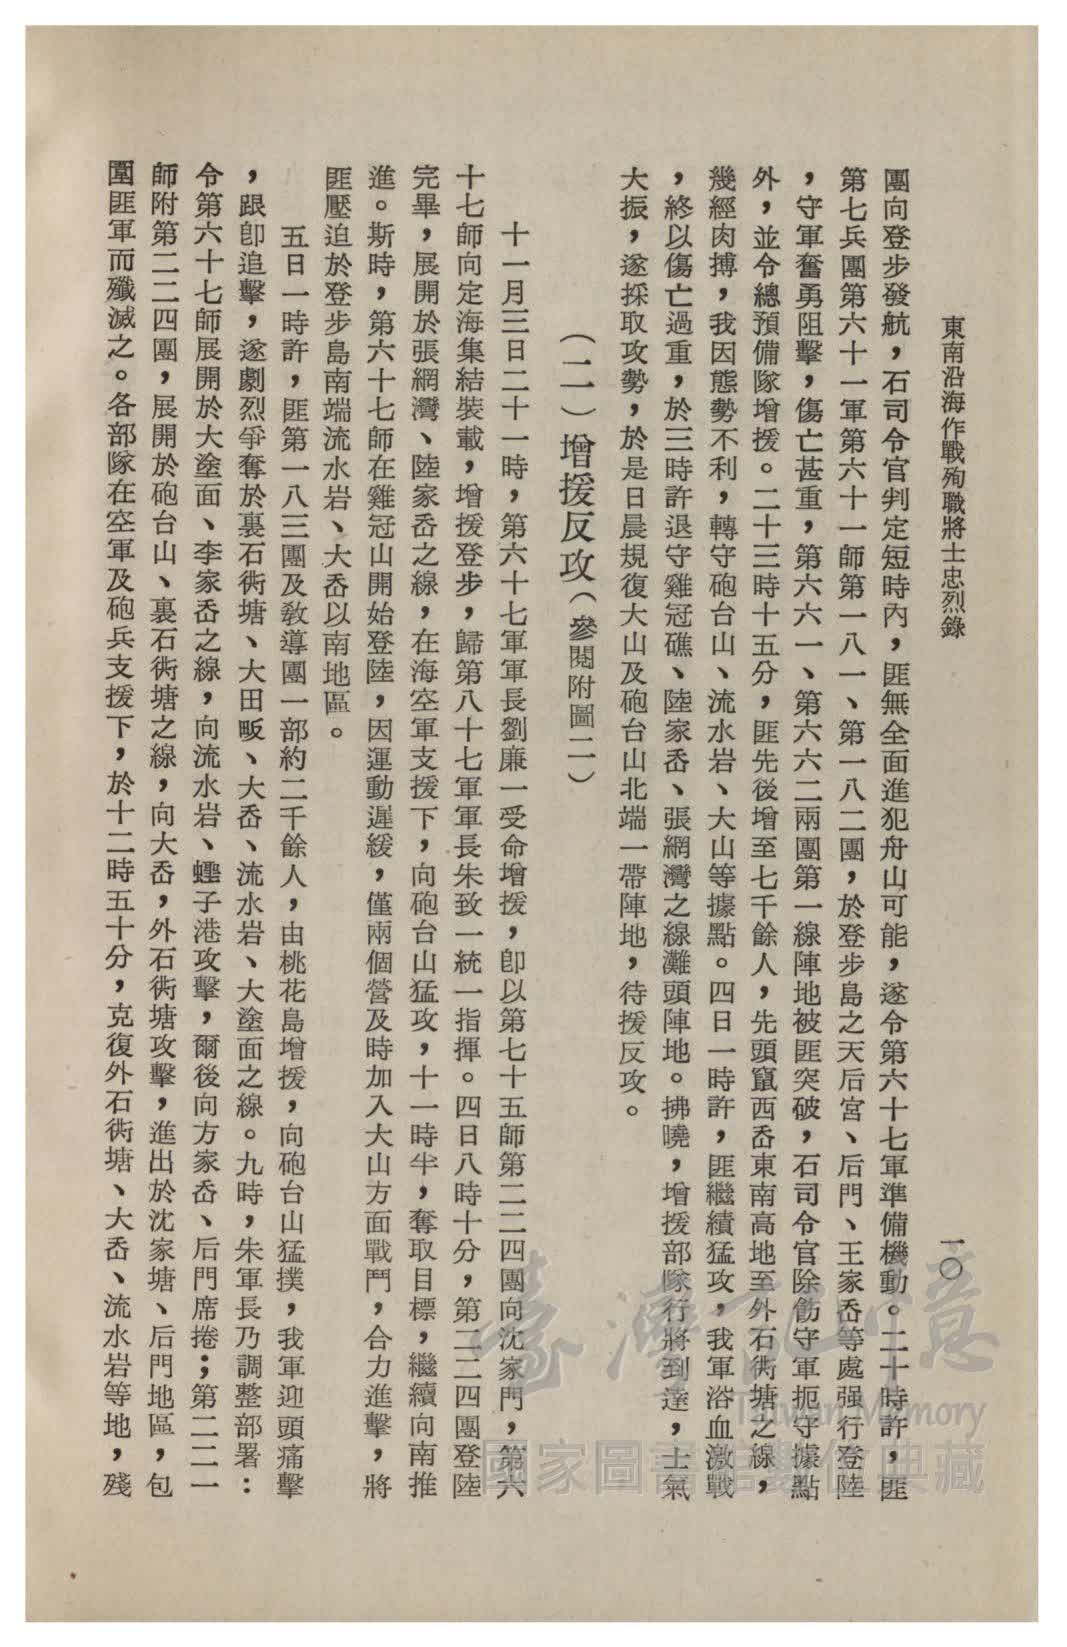 東南沿海作戰殉職將士忠烈錄
一〇
團向登步發航，石司令官判定短時內，匪無全面進犯舟山可能，遂令第六十七軍準備機動。二十時許，匪
第七兵團第六十一軍第六十一師第一八一、第一八二團，於登步島之天后宮、后門、王家岙等處强行登陸
，守軍奮勇阻擊，傷亡甚重，第六六一、第六六二兩團第一線陣地被匪突破，石司令官除飭守軍扼守據點
外，並令總預備隊增援。二十三時十五分，匪先後增至七千餘人，先頭竄西岙東南高地至外石衖塘之線，
幾經肉搏，我因態勢不利，轉守砲台山、流水岩、大山等據點。四日一時許，匪繼續猛攻，我軍浴血激戰
，終以傷亡過重，於三時許退守雞冠礁、陸家岙、張網灣之線灘頭陣地。拂曉，增援部隊行將到達，士氣
大振，遂採取攻勢，於是日晨規復大山及砲台山北端一帶陣地，待援反攻。
（二）增援反攻（參閱附圖二）
十一月三日二十一時，第六十七軍軍長劉廉一受命增援，卽以第七十五師第二二四團向沈家門，第六
十七師向定海集結裝載，增援登步，歸第八十七軍軍長朱致一統一指揮。四日八時十分，第二二四團登陸
完畢，展開於張網灣、陸家岙之線，在海空軍支援下，向砲台山猛攻，十一時半，奪取目標，繼續向南推
進。斯時，第六十七師在雞冠山開始登陸，因運動遲緩，僅兩個營及時加入大山方面戰鬥，合力進擊，將
匪壓迫於登步島南端流水岩、大岙以南地區。
五日一時許，匪第一八三團及敎導團一部約二千餘人，由桃花島增援，向砲台山猛撲，我軍迎頭痛擊
，跟卽追擊，遂劇烈爭奪於裏石衖塘、大田畈、大岙、流水岩、大塗面之線。九時，朱軍長乃調整部署：
令第六十七師展開於大塗面、李家岙之線，向流水岩、蟶子港攻擊，爾後向方家岙、后門席捲；第二二一
師附第二二四團，展開於砲台山、裏石衖塘之線，向大岙，外石衖塘攻擊，進出於沈家塘、后門地區，包
圍匪軍而殲滅之。各部隊在空軍及砲兵支援下，於十二時五十分，克復外石衖塘、大岙、流水岩等地，殘
臺灣記憶
Taiwan Memory
國家圖書館數位典藏